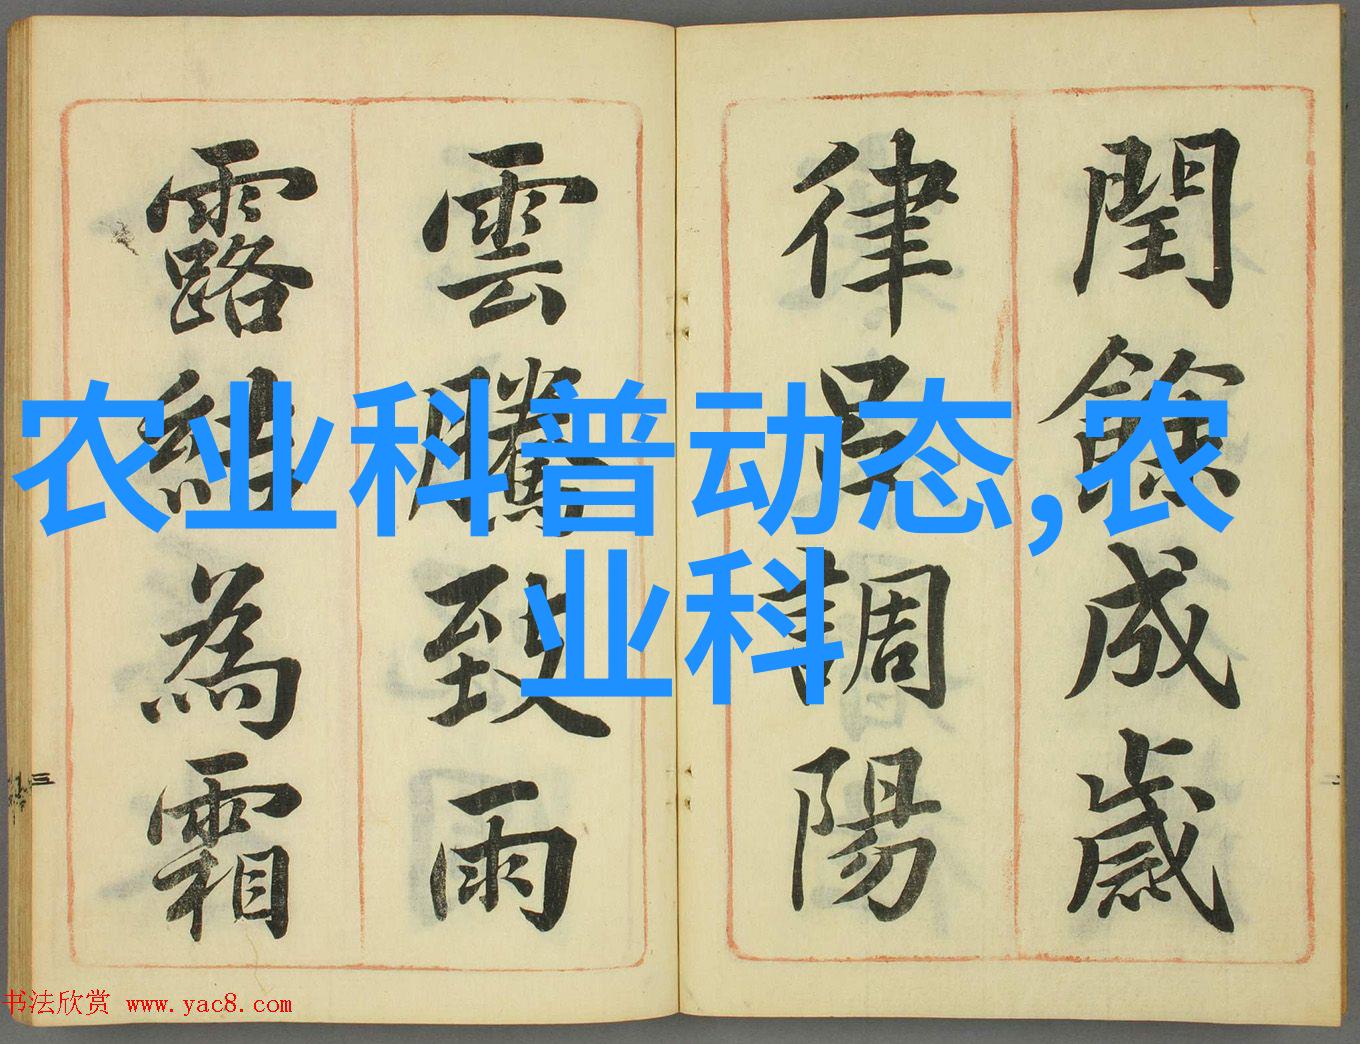 閏餘成歲
律呂調陽
雲騰致雨
露結為霜
农业科普动态,农
业科
三
二
书法欣赏 www.yac8.com